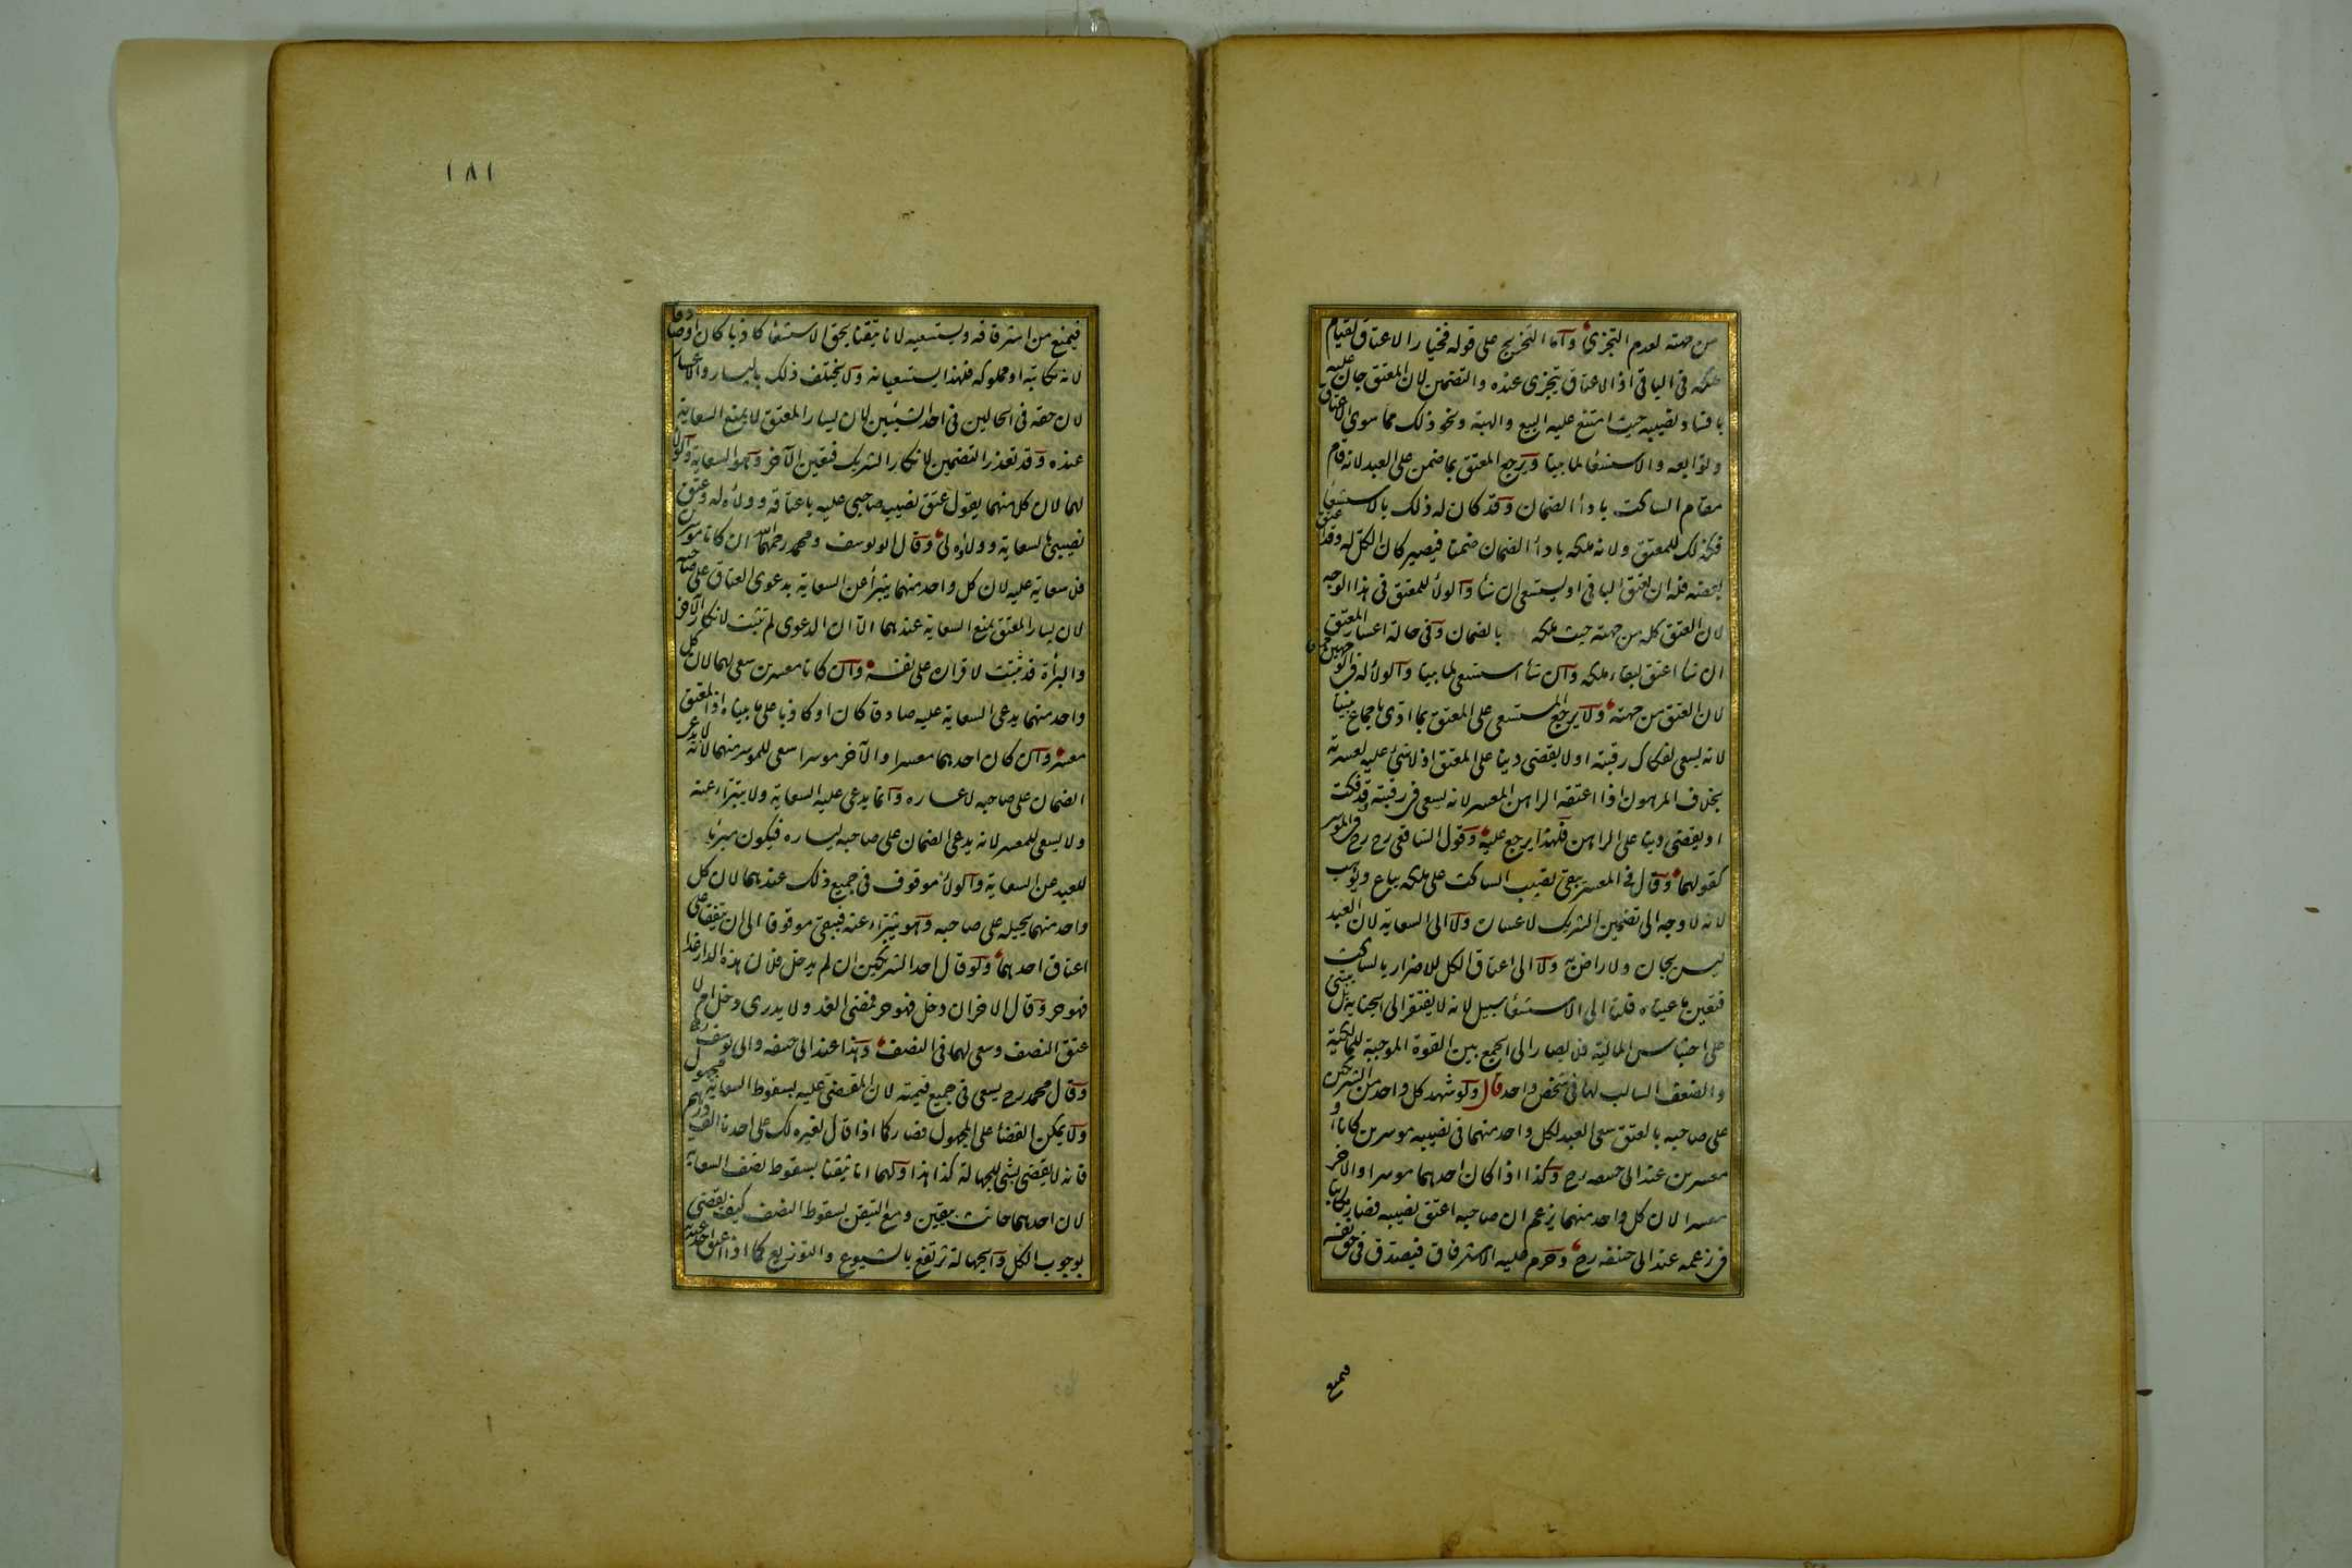 من جهته لعدم التجزى وآما التخريج على قوله فخيار الاعتاق لقيام
ملكه فى الباقى اذ الاعتاق يتجزى عنده والتضمين لان المعتق جان عليه
بافساد نصيبه حيث امتنع عليه البيع والهبة ونحو ذلك مما سوى الاعتاق
وتوابعه والاستسعا لما بينا ويرجع المعتق بما ضمن على العبد لانه قام
مقام الساكت بادأ الضمان وقد كان له ذلك بالاستسعا
فكذلك للمعتق ولانه ملكه بادأ الضمان ضمنا فيصير كان الكل له وقد عتق
بعضه فله ان يعتق الباقى او يستسعى ان شا والولا للمعتق فى هذا الوجه
لان العتق كله من جهته حيث ملكه بالضمان وفى حالة اعسار المعتق
ان شا اعتق لبقاء ملكه وان شأ استسعى لما بينا والولا له فى الوجهين
لان العتق من جهته ولا يرجع المستسعى على المعتق بما ادى باجماع بيننا
لانه يسعى لفكاك رقبته او لا يقضى دينا على المعتق اذ لا شئ عليه لعسرته
بخلاف المرهون اذا اعتقه الراهن المعسر لانه يسعى فى رقبته قد فكت
او يقضى دينا على الراهن فلهذا يرجع عليه وقول الشافعى رح فى الموسر
كقولهما وقال فى المعسر يبقى نصيب الساكت على ملكه يباع ويوهب
لانه لا وجه الى تضمين الشريك لاعساره ولا الى السعاية لان العبد
ليس بجان ولا راض به ولا الى اعتاق الكل للاضرار بالساكت
فتعين ما عيناه قلنا الى الاستسعا سبيل لانه لا يفتقر الى الجناية بل يبتنى
على احتباس المالية فلا يصار الى الجمع بين القوة الموجبة للمالكية
والضعف السالب لها فى شخص واحد قال ولو شهد كل واحد من الشريكين
على صاحبه بالعتق سعى العبد لكل واحد منهما فى نصيبه موسرين كانا او
معسرين عند ابى حنيفه رح وكذا اذا كان احدهما موسرا والآخر
معسرا لان كل واحد منهما يزعم ان صاحبه اعتق نصيبه فصار مكاتبا
فى زعمه عند ابى حنيفه رح وحرم عليه الاسترقاق فيصدق فى حق نفسه
فيمنع
١٨١
فيمنع من استرقاقه ويستسعيه لانا تيقنا بحق الاستسعا كاذبا كان او صادقا
لانه مكاتبه او مملوكه فلهذا يستسعيانه ولا يختلف ذلك باليسار والاعسار
لان حقه فى الحالين فى احد الشيئين لان يسار المعتق لا يمنع السعاية
عنده وقد تعذر التضمين لانكار الشريك فتعين الآخر وهو السعاية والولا
لهما لان كل منهما يقول عتق نصيب صاحبى عليه باعتاقه وولاؤه له وعتق
نصيبى بالسعاية وولاؤه لى وقال ابو يوسف ومحمد رحمهما الله ان كانا موسرين
فلا سعاية عليه لان كل واحد منهما يتبرأ عن السعاية بدعوى العتاق على صاحبه
لان يسار المعتق يمنع السعاية عندهما الا ان الدعوى لم تثبت لانكار الآخر
والبرأة قد ثبتت لاقراره على نفسه وان كانا معسرين سعى لهما لان كل
واحد منهما يدعى السعاية عليه صادقا كان او كاذبا على ما بيناه اذ المعتق
معسر وان كان احدهما معسرا والآخر موسرا سعى للموسر منهما لانه لا يدعى
الضمان على صاحبه لاعساره وانما يدعى عليه السعاية ولا يتبراء عنه
ولا يسعى للمعسر لانه يدعى الضمان على صاحبه ليساره فيكون مبرئا
للعبد عن السعاية والولا موقوف فى جميع ذلك عندهما لان كل
واحد منهما يحيله على صاحبه وهو يتبراء عنه فيبقى موقوفا الى ان يتفقا على
اعتاق احدهما ولو قال احد الشريكين ان لم يدخل فلان هذه الدار غدا
فهو حر وقال الاخر ان دخل فهو حر فمضى الغد ولا يدرى دخل ام لا
عتق النصف وسعى لهما فى النصف وهذا عند ابى حنيفه وابى يوسف رح
وقال محمد رح يسعى فى جميع قيمته لان المقضى عليه بسقوط السعاية مجهول
ولا يمكن القضا على المجهول فصار كما اذا قال لغيره لك على احدنا الف درهم
فانه لا يقضى بشئ للجهالة كذا هذا ولهما انا تيقنا بسقوط نصف السعاية
لان احدهما حانث بيقين ومع التيقن بسقوط النصف كيف يقضى
بوجوب الكل والجهالة ترتفع بالشيوع والتوزيع كما اذا اعتق احد عبديه